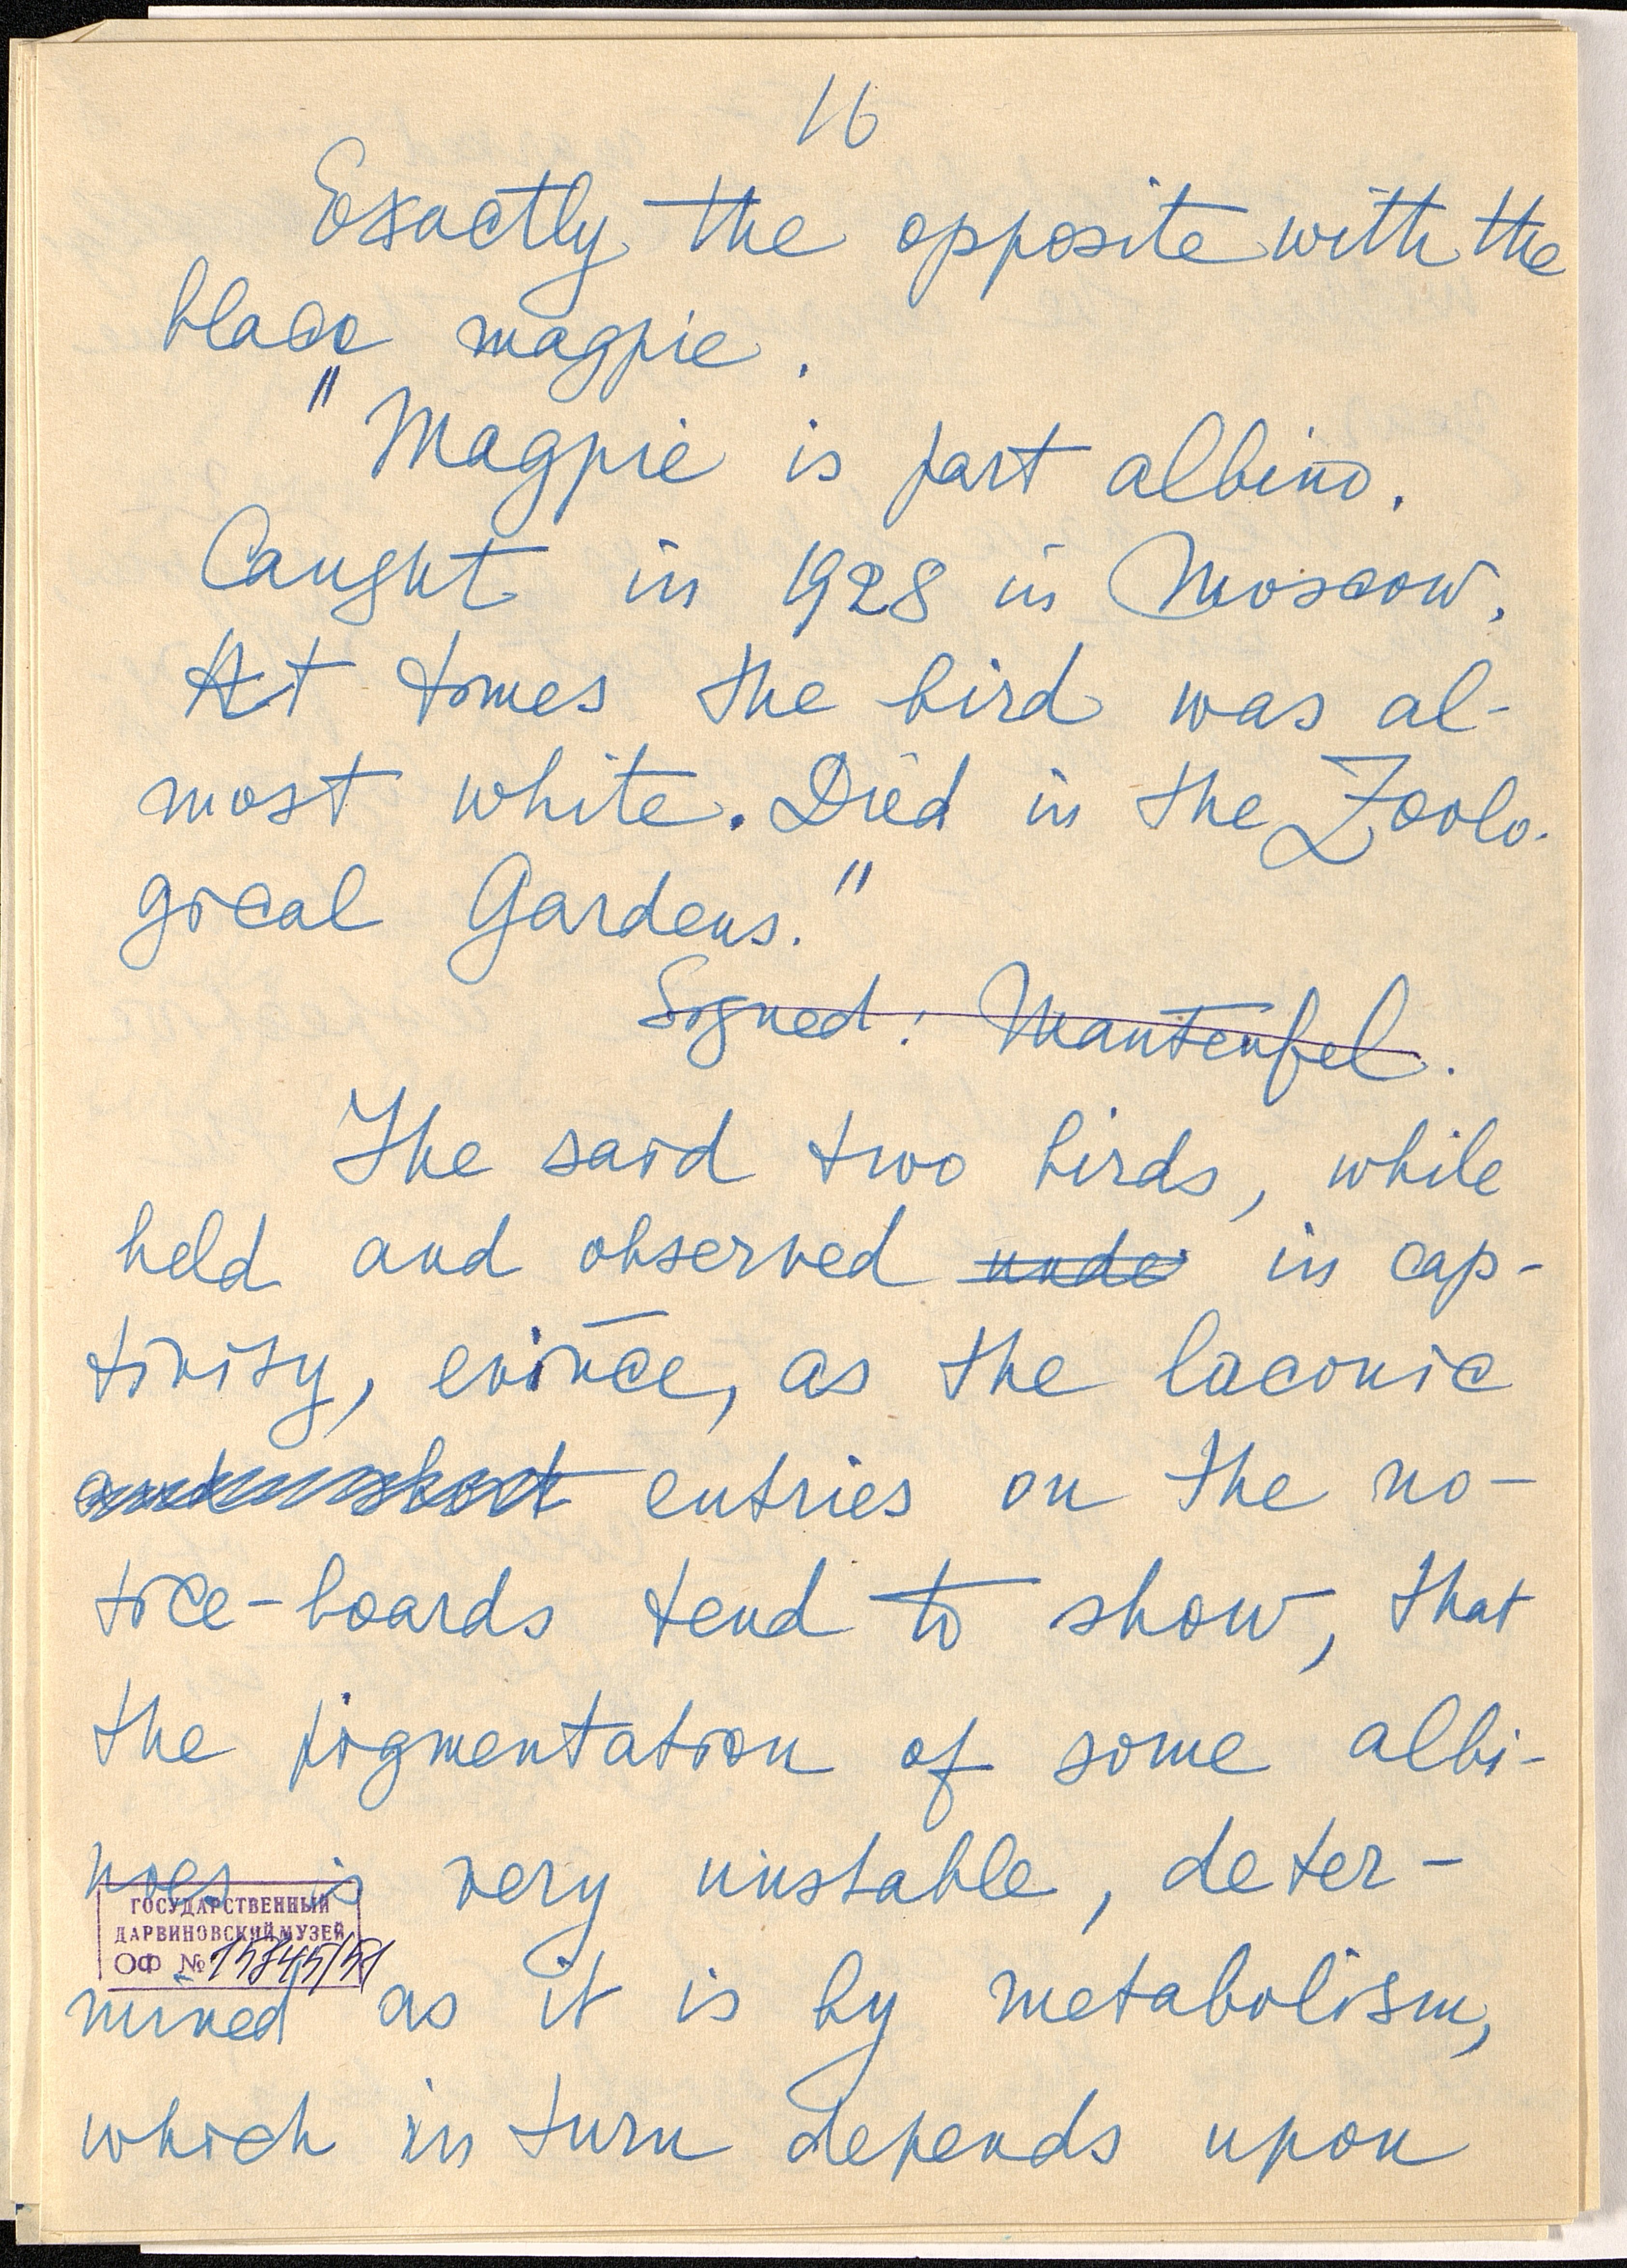 16
Exactly the opposite with the
black magpie.
"Magpie is part albino.
Caught in 1928 in Moscow.
At times the bird was al-
most white. Died in the Zoolo-
gical Gardens."
Signed: Manteufel.
The said two birds, while
held and observed unde in cap-
tivity, evince, as the laconic
and short entries on the no-
tice-boards tend to show, that
the pigmentation of some albi-
noes is very unstable, deter-
ГОСУДАРСТВЕННЫЙ
ДАРВИНОВСКИЙ МУЗЕЙ
ОФ №15845/51
mined as it is by metabolism,
which in turn depends upon